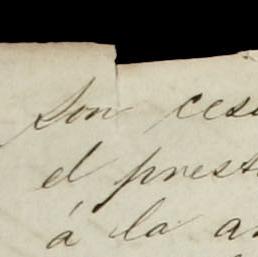 son ces
el prest
á la a